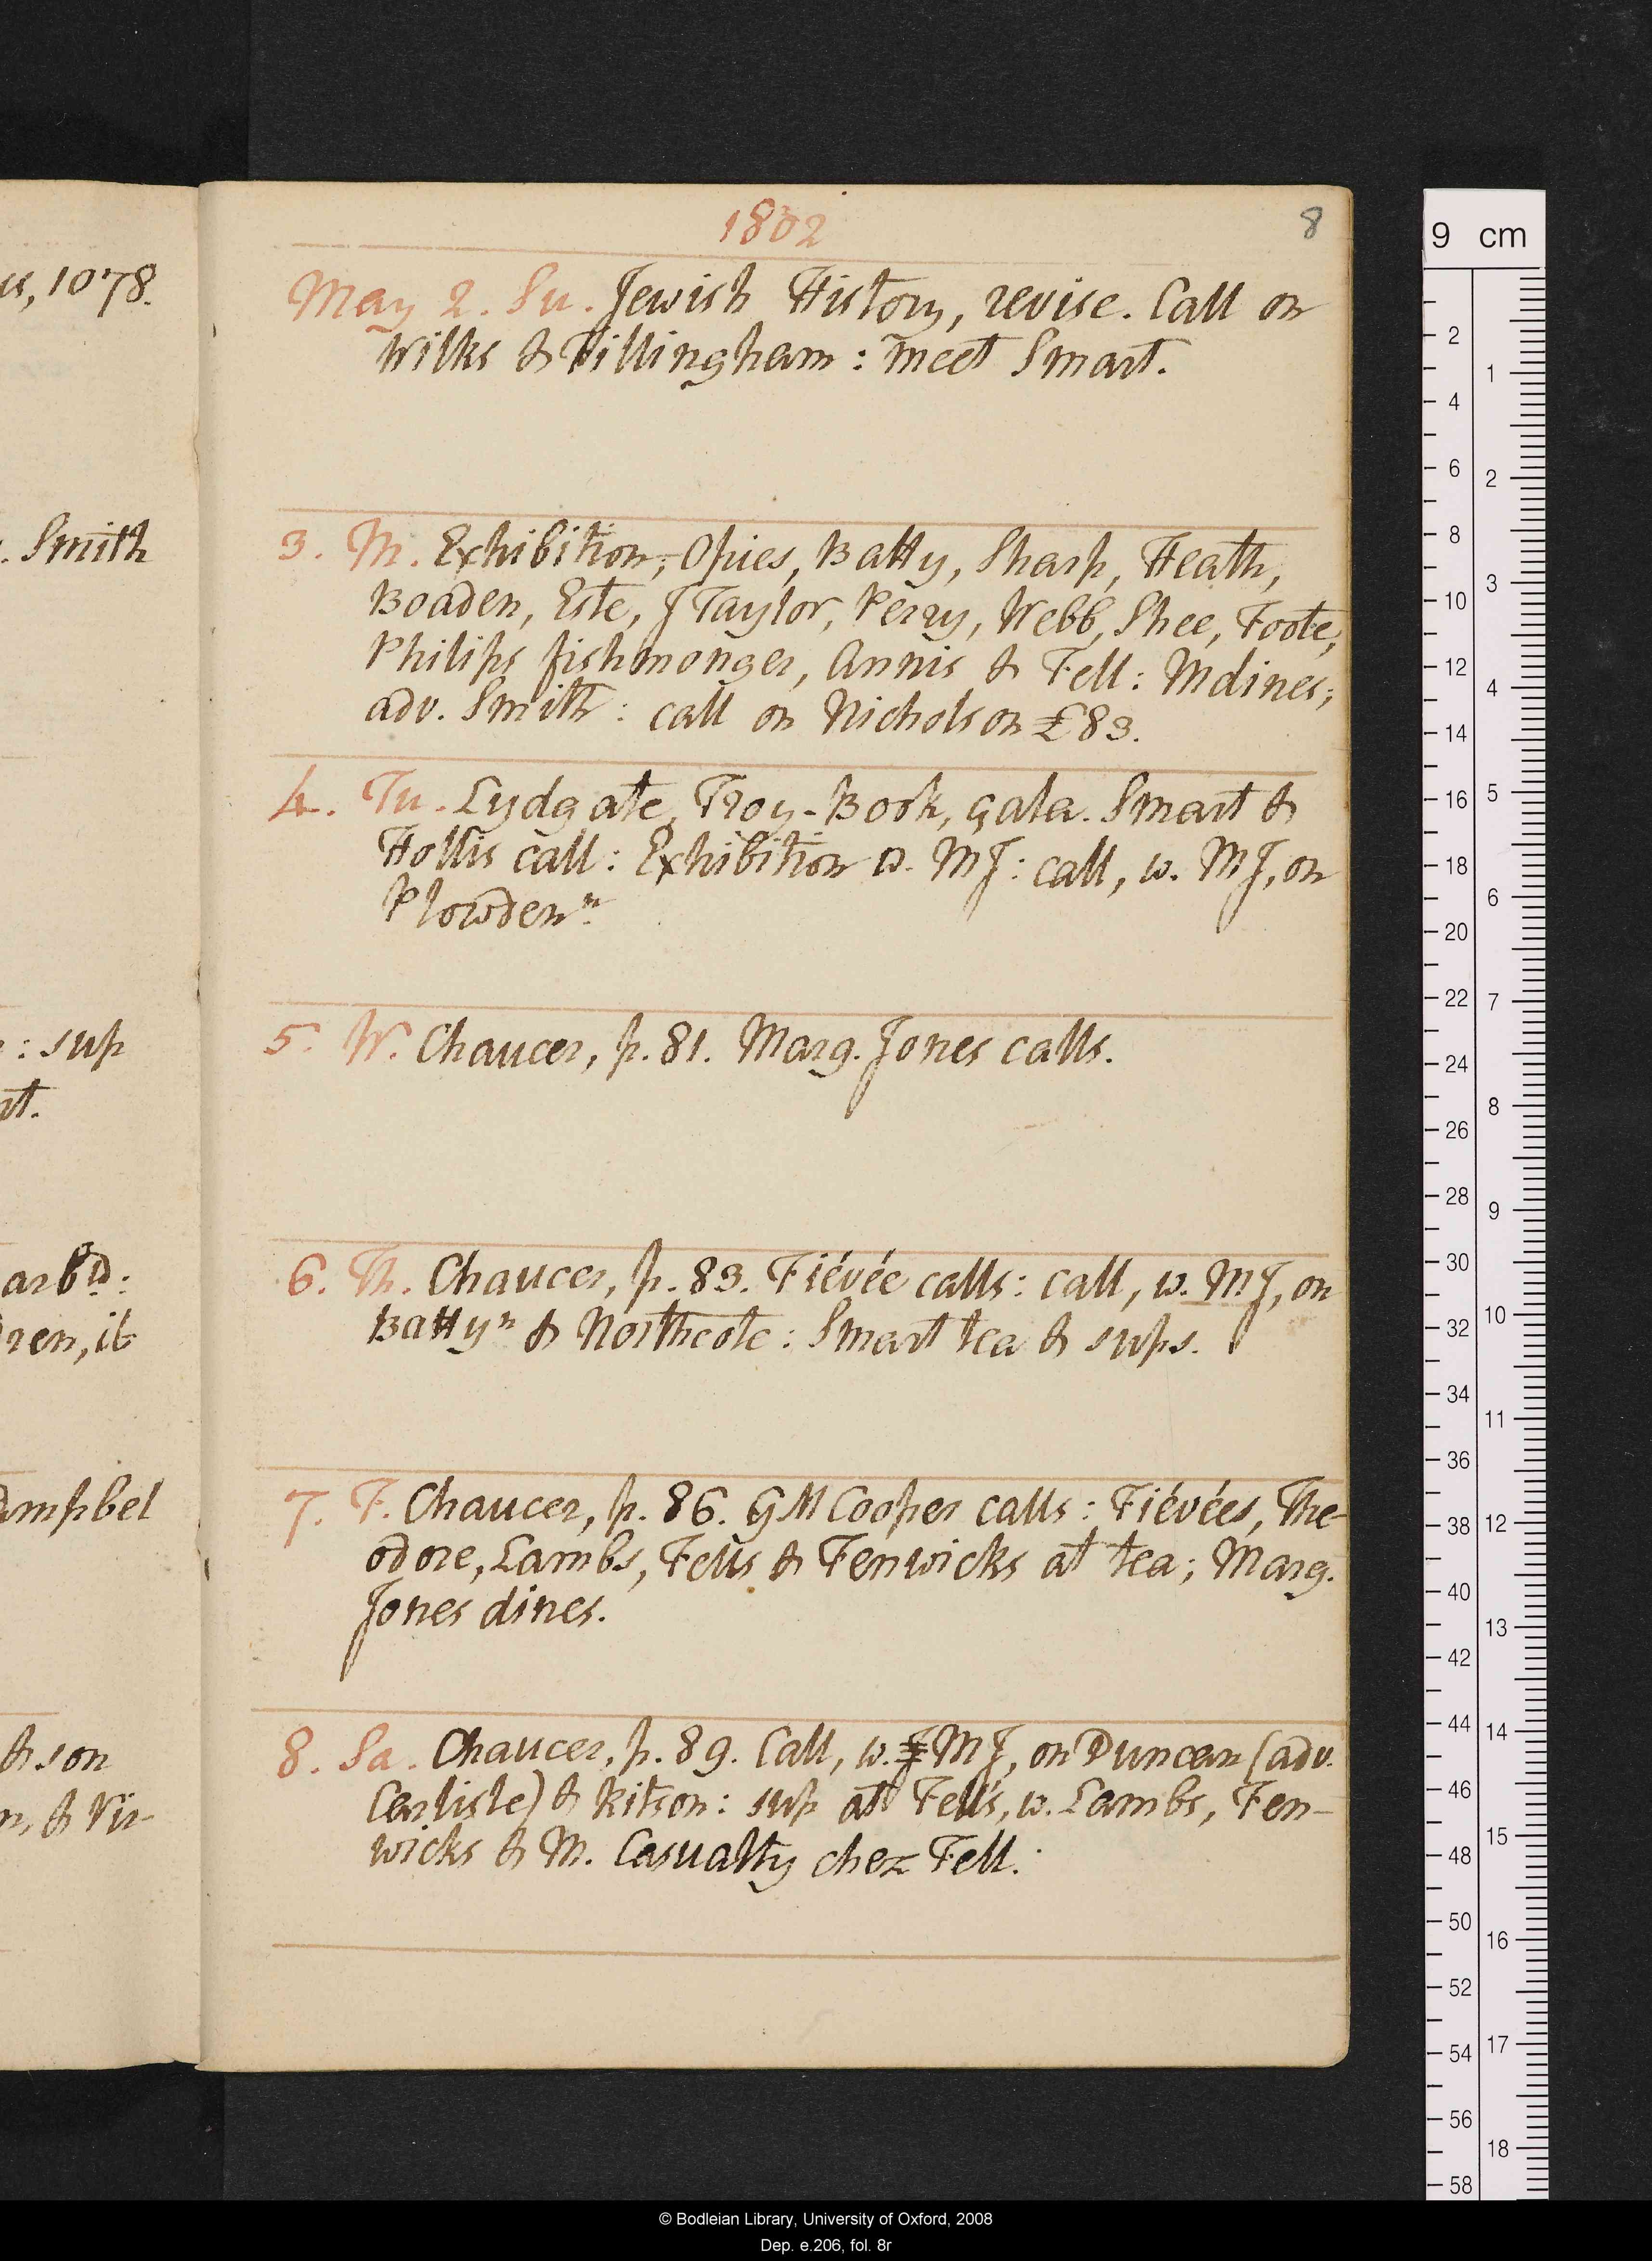 1802
8
us, 1078.
May 2. Su. Jewish History, revise. Call on
Wilks & Fillingham: meet Smart.
. Smith
3. M. Exhibition, Opies, Batty, Sharp, Heath,
Boaden, Este, J Taylor, Perry, Webb, Shee, Foote,
Philips fishmonger, Annis & Fell: M dines;
adv. Smith: call on Nicholson £83.
4. Tu. Lydgate, Troy-Book, gala. Smart &
Hollis call: Exhibition w. MJ: call, w. MJ, on
Plowden n.
5. W. Chaucer, p. 81. Marg. Jones calls.
: sup
rt.
6. Th. Chaucer, p. 83. Fiévée calls: call, w. MJ, on
Batty n & Northcote: Smart tea & sups.
arbd:
ren, it
7. F. Chaucer, p. 86. G M Cooper calls: Fiévées, The-
odore, Lambs, Fells & Fenwicks at tea; Marg.
Jones dines.
ampbel
8. Sa. Chaucer, p. 89. Call, w. MJ, on Duncan (adv.
Carlisle) & Ritson: sup at Fell's, w. Lambs, Fen-
wicks & M. Casualty chez Fell.
& son
n, & Vir-
9 cm
2
4
6
8
10
12
14
16
18
20
22
24
26
28
30
32
34
36
38
40
42
44
46
48
50
52
54
56
58
1
2
3
4
5
6
7
8
9
10
11
12
13
14
15
16
17
18
© Bodleian Library, University of Oxford, 2008
Dep. e.206, fol. 8r